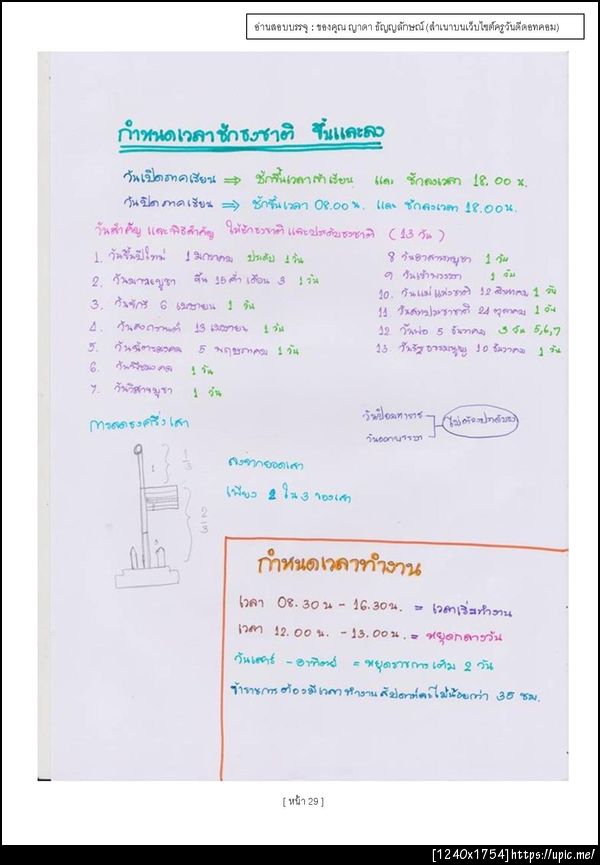 อ่านสอบบรรจุ : ของคุณ ญาดา ธัญญลักษณ์ (สำเนาบนเว็บไซต์ครูวันดีดอทคอม)
กำหนดเวลาชักธงชาติ ขึ้นและลง
วันเปิดภาคเรียน ⇒ ชักขึ้นเวลาเข้าเรียน และ ชักลงเวลา 18.00 น.
วันปิดภาคเรียน ⇒ ชักขึ้นเวลา 08.00 น. และ ชักลงเวลา 18.00 น.
วันสำคัญ และพิธีสำคัญ ให้ชักธงชาติและประดับธงชาติ (13 วัน)
1. วันขึ้นปีใหม่ 1 มกราคม ประดับ 1 วัน
2. วันมาฆบูชา ขึ้น 15 ค่ำ เดือน 3 1 วัน
3. วันจักรี 6 เมษายน 1 วัน
4. วันสงกรานต์ 13 เมษายน 1 วัน
5. วันฉัตรมงคล 5 พฤษภาคม 1 วัน
6. วันพืชมงคล 1 วัน
7. วันวิสาขบูชา 1 วัน
8 วันอาสาฬหบูชา 1 วัน
9 วันเข้าพรรษา 1 วัน
10. วันแม่แห่งชาติ 12 สิงหาคม 1 วัน
11 วันสหประชาชาติ 24 ตุลาคม 1 วัน
12 วันพ่อ 5 ธันวาคม 3 วัน 5,6,7
13. วันรัฐธรรมนูญ 10 ธันวาคม 1 วัน
วันปิยมหาราช
วันออกพรรษา
ไม่ต้องประดับธง
การลดธงครึ่งเสา
1/3
2/3
ลงจากยอดเสา
เพียง 2 ใน 3 ของเสา
กำหนดเวลาทำงาน
เวลา 08.30 น - 16.30 น. = เวลาเริ่มทำงาน
เวลา 12.00 น. - 13.00 น. = หยุดกลางวัน
วันเสาร์ - อาทิตย์ = หยุดราชการเต็ม 2 วัน
ข้าราชการต้องมีเวลาทำงานสัปดาห์ละไม่น้อยกว่า 35 ชม.
[ หน้า 29 ]
[1240x1754] https://upic.me/